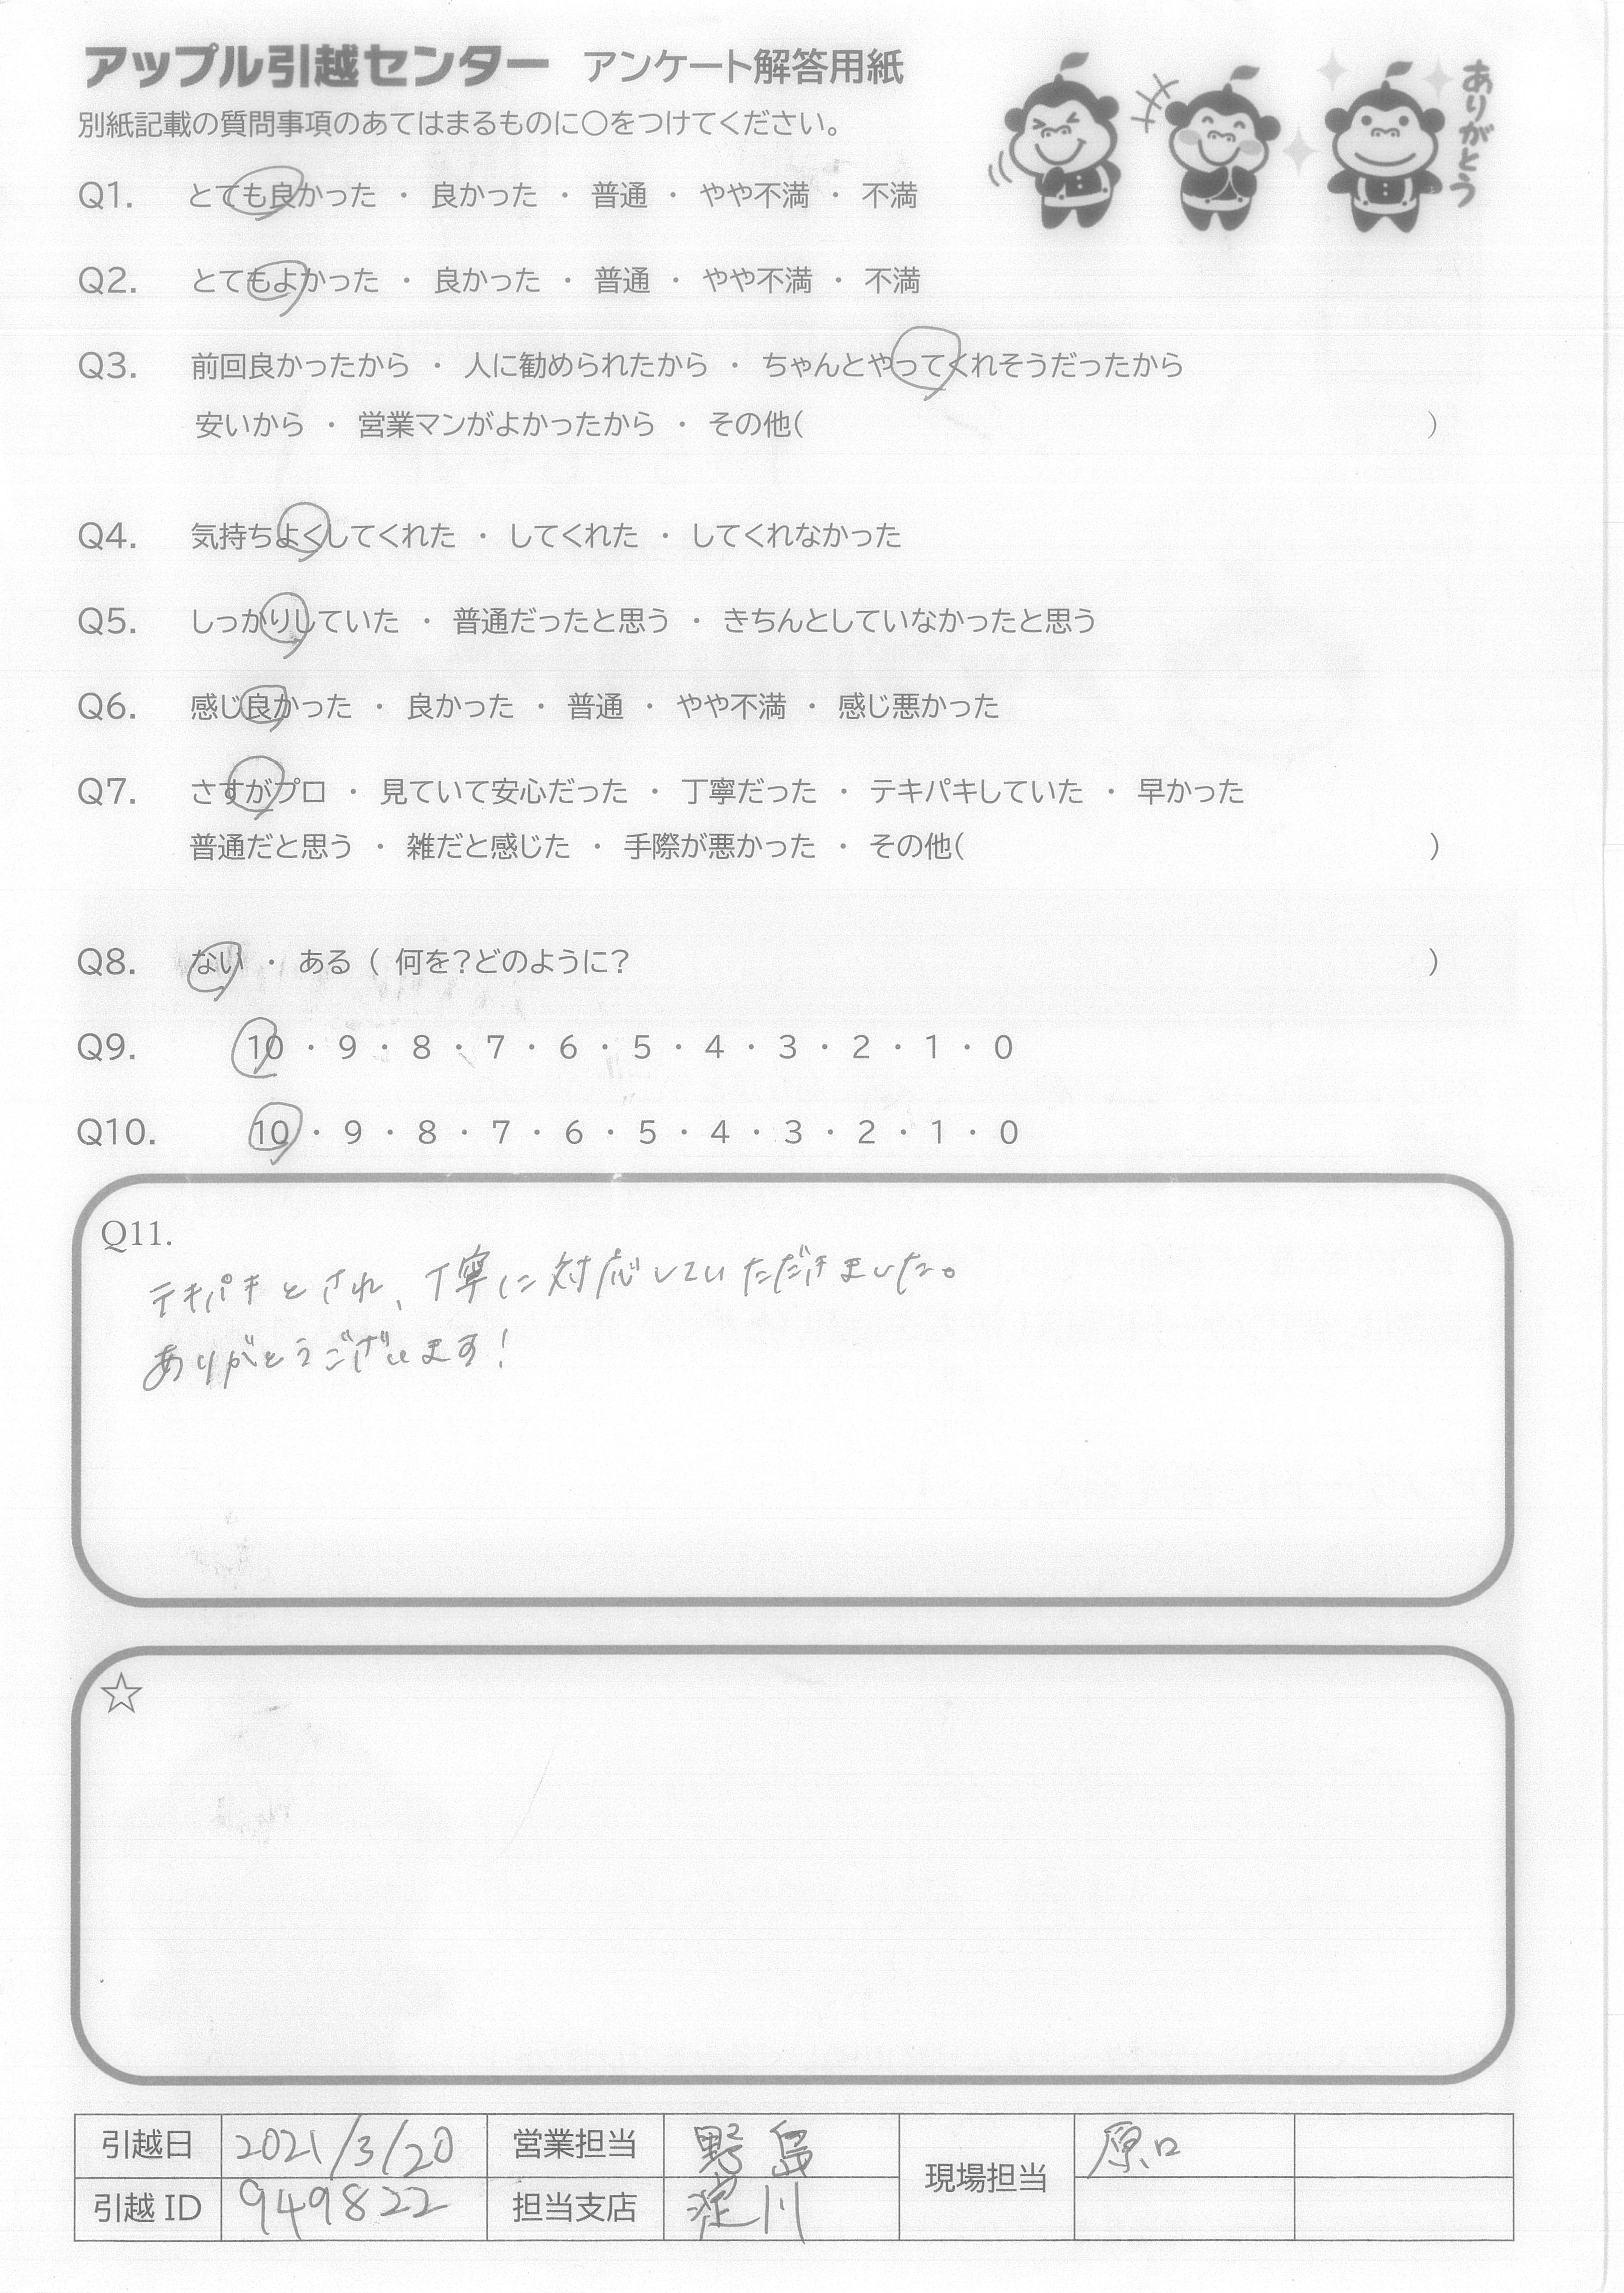 アップル引越センター アンケート解答用紙
ありがとう
別紙記載の質問事項のあてはまるものに〇をつけてください。
Q1. とても良かった ・ 良かった ・ 普通 ・ やや不満 ・ 不満
Q2. とてもよかった ・ 良かった ・ 普通 ・ やや不満 ・ 不満
Q3. 前回良かったから ・ 人に勧められたから ・ ちゃんとやってくれそうだったから
安いから ・ 営業マンがよかったから ・ その他( )
Q4. 気持ちよくしてくれた ・ してくれた ・ してくれなかった
Q5. しっかりしていた ・ 普通だったと思う ・ きちんとしていなかったと思う
Q6. 感じ良かった ・ 良かった ・ 普通 ・ やや不満 ・ 感じ悪かった
Q7. さすがプロ ・ 見ていて安心だった ・ 丁寧だった ・ テキパキしていた ・ 早かった
普通だと思う ・ 雑だと感じた ・ 手際が悪かった ・ その他( )
Q8. ない ・ ある ( 何を?どのように? )
Q9. 10 ・ 9 ・ 8 ・ 7 ・ 6 ・ 5 ・ 4 ・ 3 ・ 2 ・ 1 ・ 0
Q10. 10 ・ 9 ・ 8 ・ 7 ・ 6 ・ 5 ・ 4 ・ 3 ・ 2 ・ 1 ・ 0
Q11.
テキパキとされ、丁寧に対応していただきました。
ありがとうございます!
☆
引越日 2021/3/20 営業担当 野島 現場担当 原口
引越ID 949822 担当支店 淀川